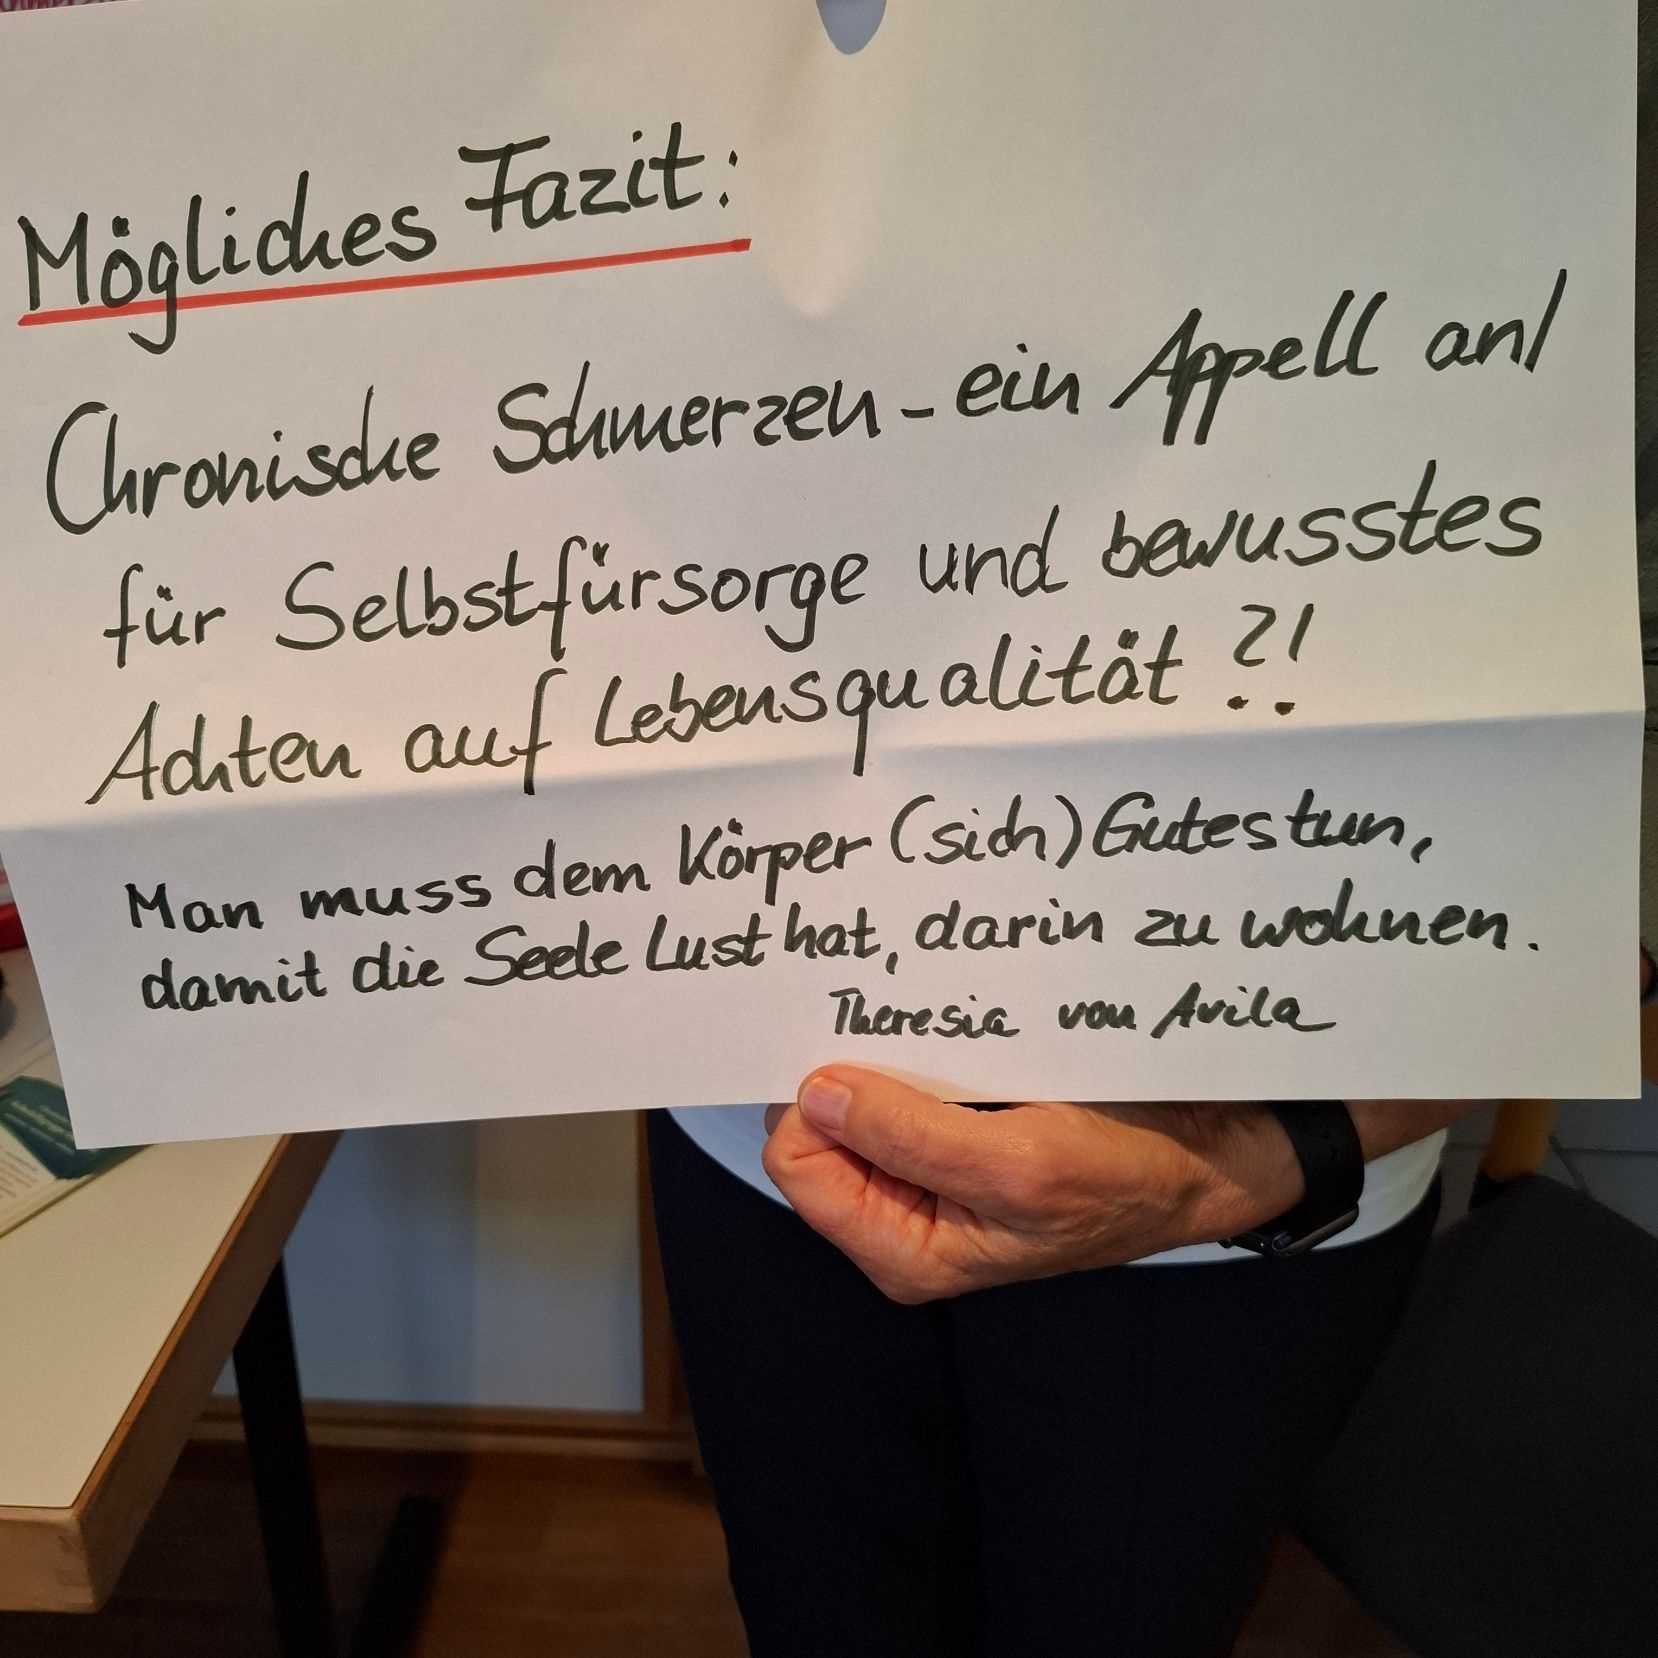 Mögliches Fazit:
Chronische Schmerzen - ein Appell an/
für Selbstfürsorge und bewusstes
Achten auf Lebensqualität?!
Man muss dem Körper (sich) Gutes tun,
damit die Seele Lust hat, darin zu wohnen.
Theresia von Avila